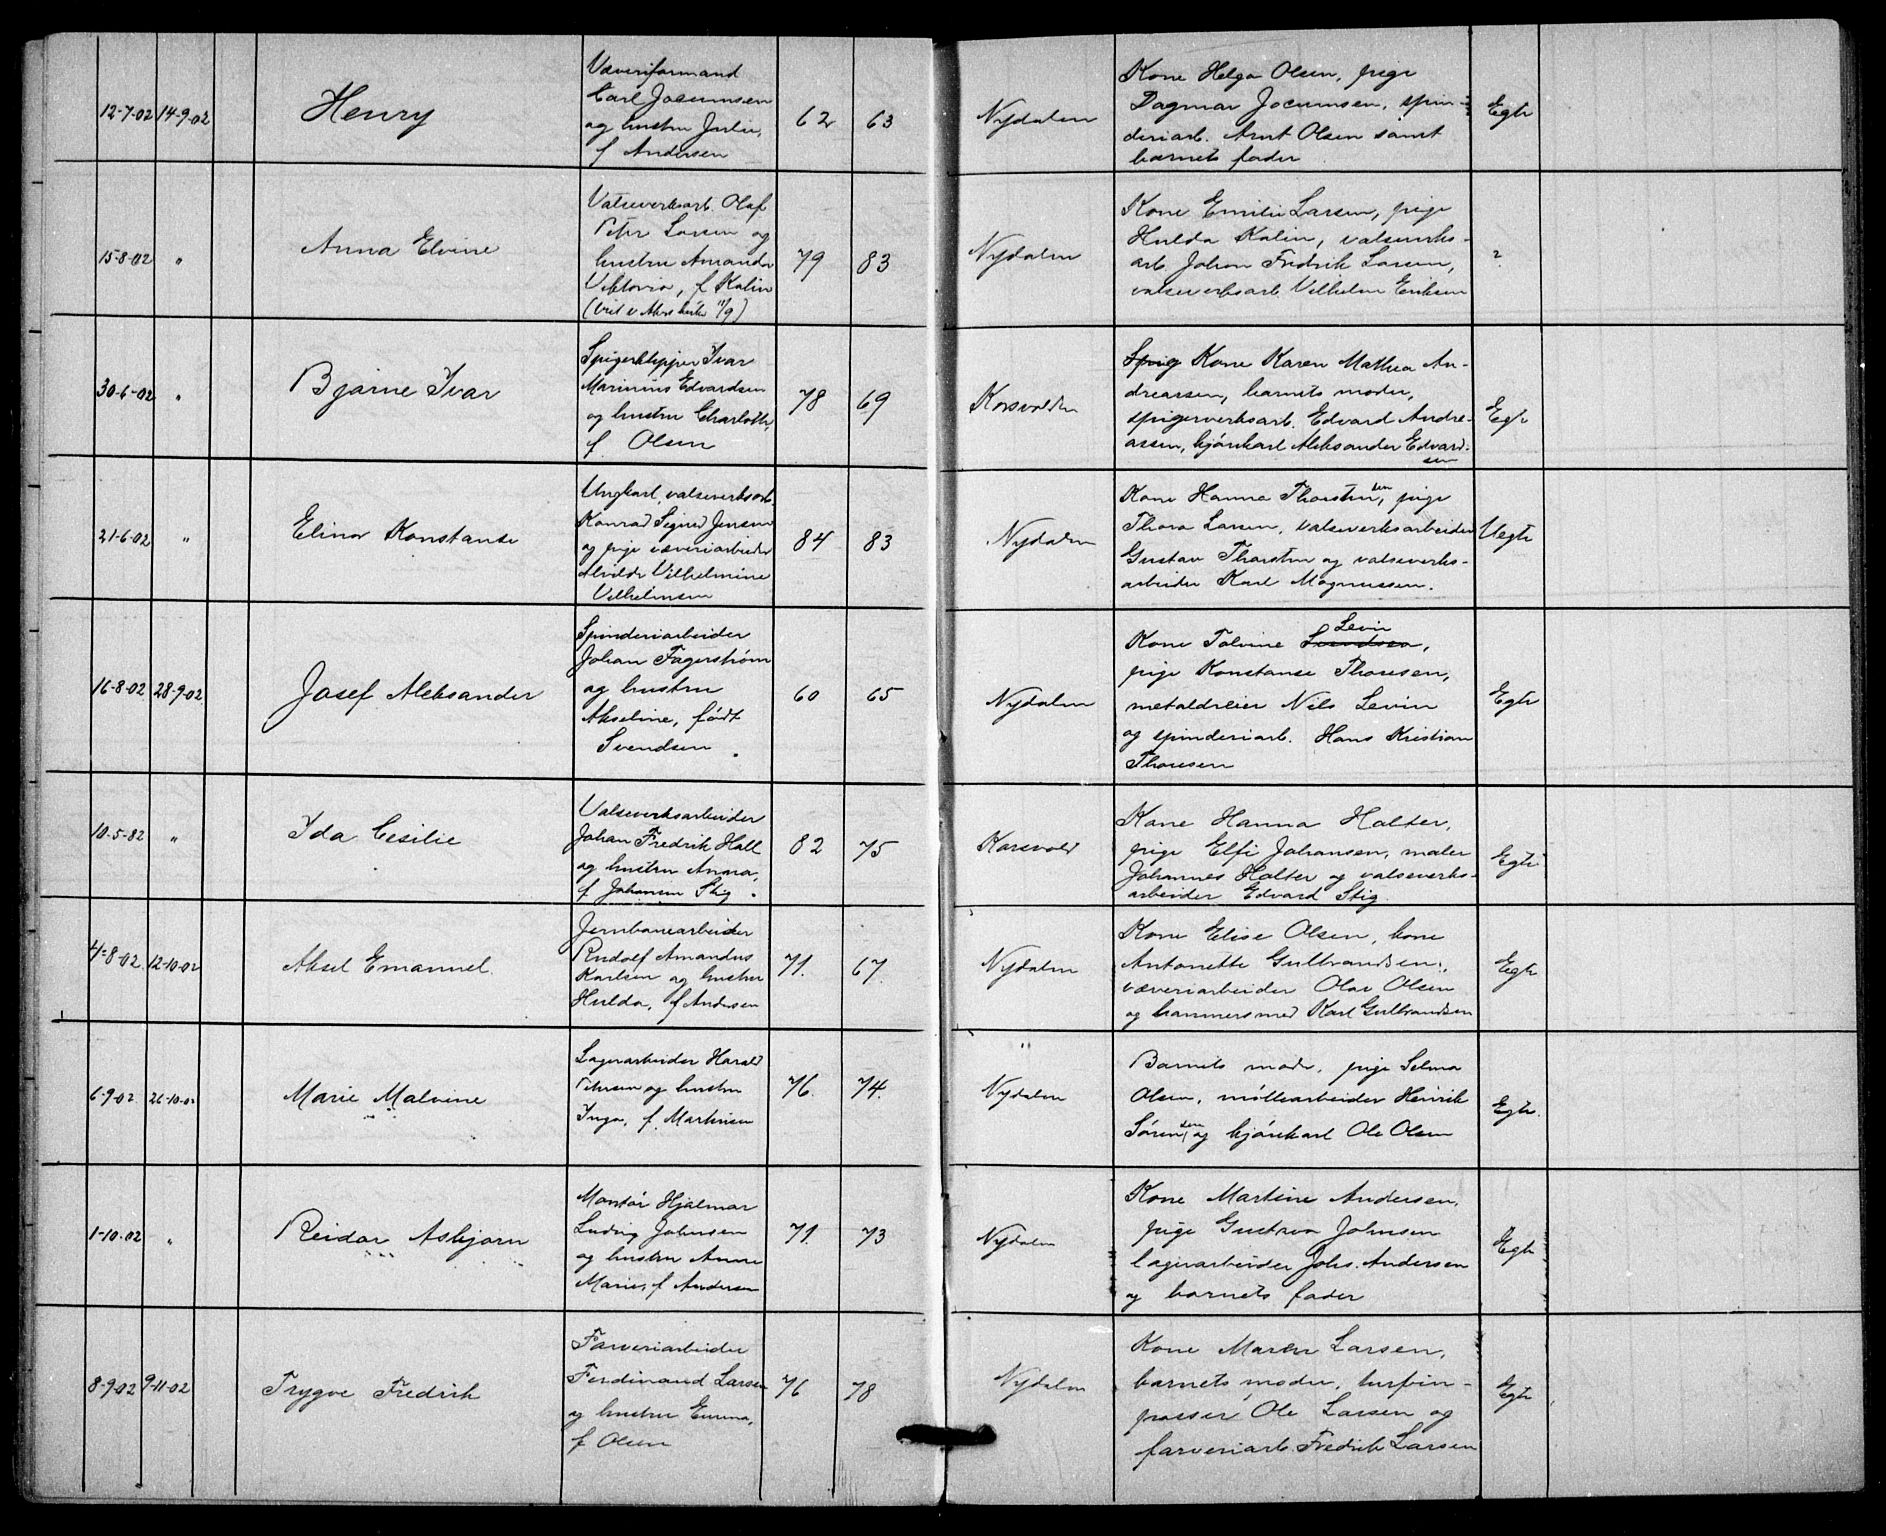 12-7-02 14-9-02
Henry
Væveriformand
Carl Jocumsen
og hustru Julie,
f. Andersen
62 63
Nydalen
Kone Helga Olsen, pige
Dagmar Jocumsen, spin-
deriarb. Arnt Olsen samt
barnets fader
Egte
15-8-02 "
Anna Elvine
Valseverksarb. Olaf
Peter Larsen og
hustru Amanda
Viktoria, f. Kalin
79 83
Nydalen
Kone Emilie Larsen, pige
Hulda Kalin, valseverks-
arb. Johan Fredrik Larsen,
valseverksarb. Vilhelm Eriksen
30-6-02 "
Bjarne Ivar
Spigerklipper Ivar
Marinius Edvardsen
og hustru Charlotte,
f. Olsen
78 69
Korsvolden
Spig Kone Karen Mathea An-
dreassen, barnets moder,
spigerverksarb. Edvard Andre-
assen, kjørekarl Aleksander Edvard-
sen
Egte
21-6-02 "
Elinor Konstanse
Ungkarl, valseverksarb.
Konrad Sigurd Jensen
og pige væveriarbeider
Alvilde Vilhelmine
Vilhelmsen
84 83
Nydalen
Kone Hanna Thorstensen, pige
Thora Larsen, valseverksarbeider
Gustav Thorsten og valseverks-
arbeider Karl Magnussen.
Uegte
16-8-02 28-9-02
Josef Aleksander
Spinderiarbeider
Johan Fagerstrøm
og hustru
Akseline, født
Svendsen
60 65
Nydalen
Levin
Kone Tolvine Svendsen,
pige Konstanse Thoresen,
metaldreier Nils Levin
og spinderiarb. Hans Kristian
Thoresen
Egte
10-5-82 "
Ida Cesilie
Valseverksarbeider
Johan Fredrik Hall
og hustru Anna,
f. Johansen Stig
82 75
Korsvold
Kone Hanna Halter,
pige Elfi Johansen, maler
Johannes Halter og valseverks-
arbeider Edvard Stig.
Egte
4-8-02 12-10-02
Aksel Emanuel
Jernbanearbeider
Rudolf Amandus
Karlsen og hustru
Hulda, f. Andersen
71. 67.
Nydalen
Kone Elise Olsen, kone
Antonette Gulbrandsen,
væveriarbeider Olav Olsen
og hammersmed Karl Gulbrandsen
Egte
6-9-02 26-10-02
Marie Malvine
Lagerarbeider Harald
Petersen og hustru
Inga, f. Martinsen
76. 74.
Nydalen
Barnets moder, pige Selma
Olsen, møllearbeider Henrik
Sørensen og kjørekarl Ole Olsen
Egte.
1-10-02 "
Reidar Asbjørn
Montør Hjalmar
Ludvig Johnsen
og hustru Anne
Marie, f. Andersen
71. 73
Nydalen
Kone Martine Andersen,
pige Gustava Johnsen
lagerarbeider Johs. Andersen
og barnets fader
Egte
8-9-02 9-11-02
Trygve Fredrik
Farveriarbeider
Ferdinand Larsen
og hustru Emma,
f. Olsen
76 78
Nydalen
Kone Maren Larsen,
barnets moder, turbin-
passer Ole Larsen og
farveriarb. Fredrik Larsen
Egte